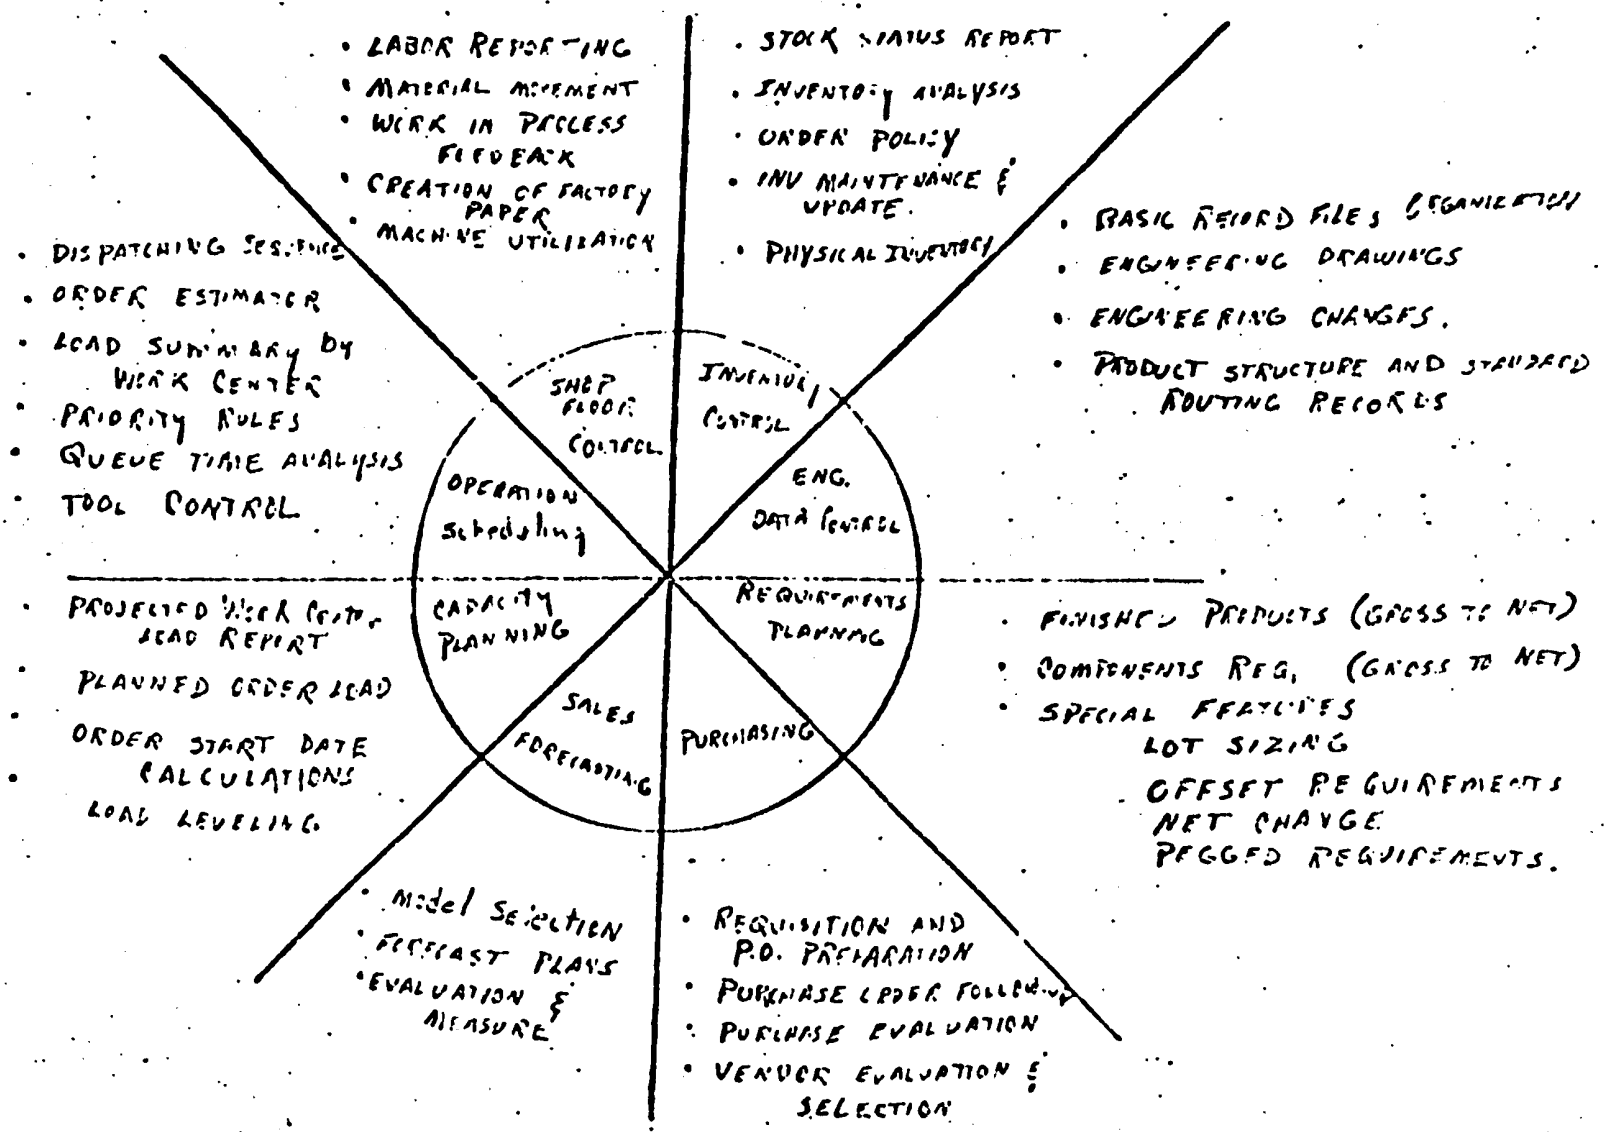 • LABOR REPORTING
• MATERIAL MOVEMENT
• WORK IN PROCESS
FEEDBACK
• CREATION OF FACTORY
PAPER
• MACHINE UTILIZATION
• STOCK STATUS REPORT
• INVENTORY ANALYSIS
• ORDER POLICY
• INV MAINTENANCE &
UPDATE.
• PHYSICAL INVENTORY
• BASIC RECORD FILES ORGANIZATION
• ENGINEERING DRAWINGS
• ENGINEERING CHANGES.
• PRODUCT STRUCTURE AND STANDARD
ROUTING RECORDS
• DISPATCHING SEQUENCE
• ORDER ESTIMATOR
• LOAD SUMMARY by
WORK CENTER
• PRIORITY RULES
• QUEUE TIME ANALYSIS
• TOOL CONTROL
SHOP
FLOOR
CONTROL
INVENTORY
CONTROL
OPERATION
Scheduling
ENG.
DATA CONTROL
CAPACITY
PLANNING
REQUIREMENTS
PLANNING
SALES
FORECASTING
PURCHASING
• PROJECTED Work Center
LOAD REPORT
• PLANNED ORDER LOAD
• ORDER START DATE
CALCULATIONS
• LOAD LEVELING
• FINISHED PRODUCTS (GROSS TO NET)
• COMPONENTS REQ. (GROSS TO NET)
• SPECIAL FEATURES
LOT SIZING
OFFSET REQUIREMENTS
NET CHANGE
PEGGED REQUIREMENTS.
• Model Selection
• FORECAST PLANS
• EVALUATION &
MEASURE
• REQUISITION AND
P.O. PREPARATION
• PURCHASE ORDER FOLLOWING
• PURCHASE EVALUATION
• VENDOR EVALUATION &
SELECTION